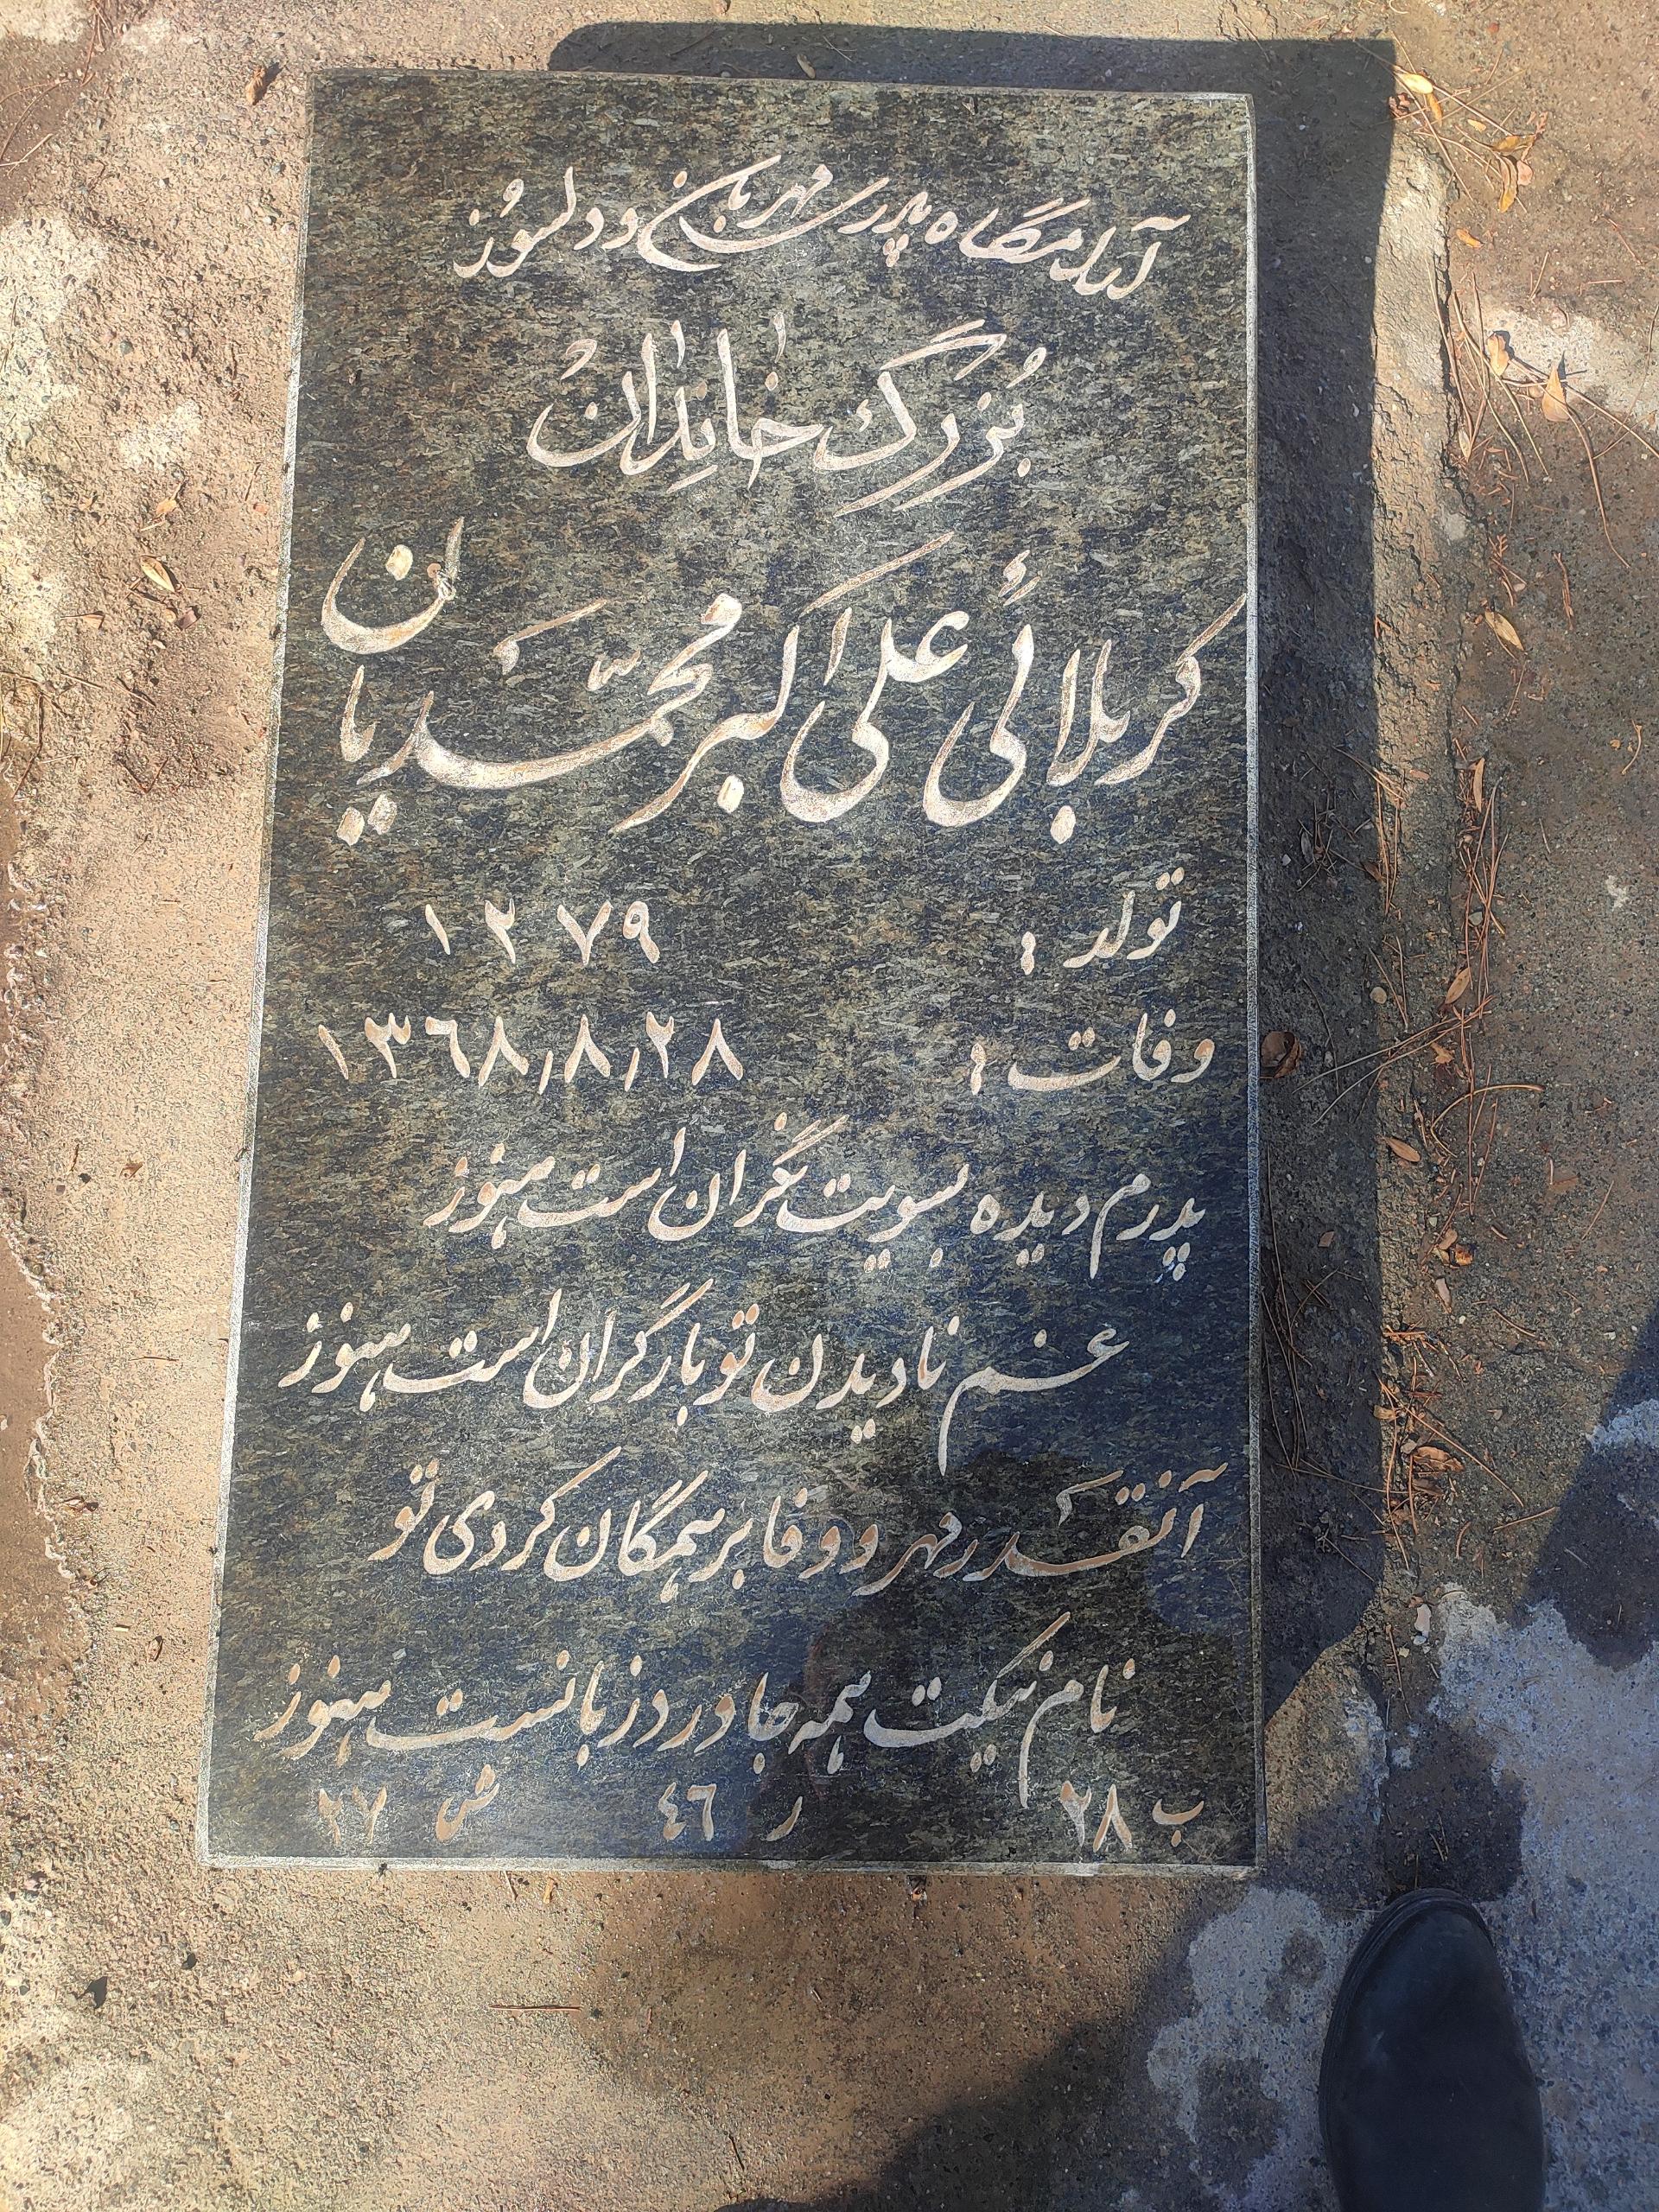 آرامگاه پدر مهربان و دلسوز
بزرگ خاندان
کربلائی علی اکبر محمدیان
تولد : ۱۲۷۹
وفات : ۱۳۶۸٫۸٫۲۸
پدرم دیده بسویت نگران است هنوز
غم نادیدن تو بار گران است هنوز
آنقدر مهر و وفا بر همگان کردی تو
نام نیکت همه جا ورد زبانست هنوز
ب ۲۸ ر ٤٦ ش ۲۷